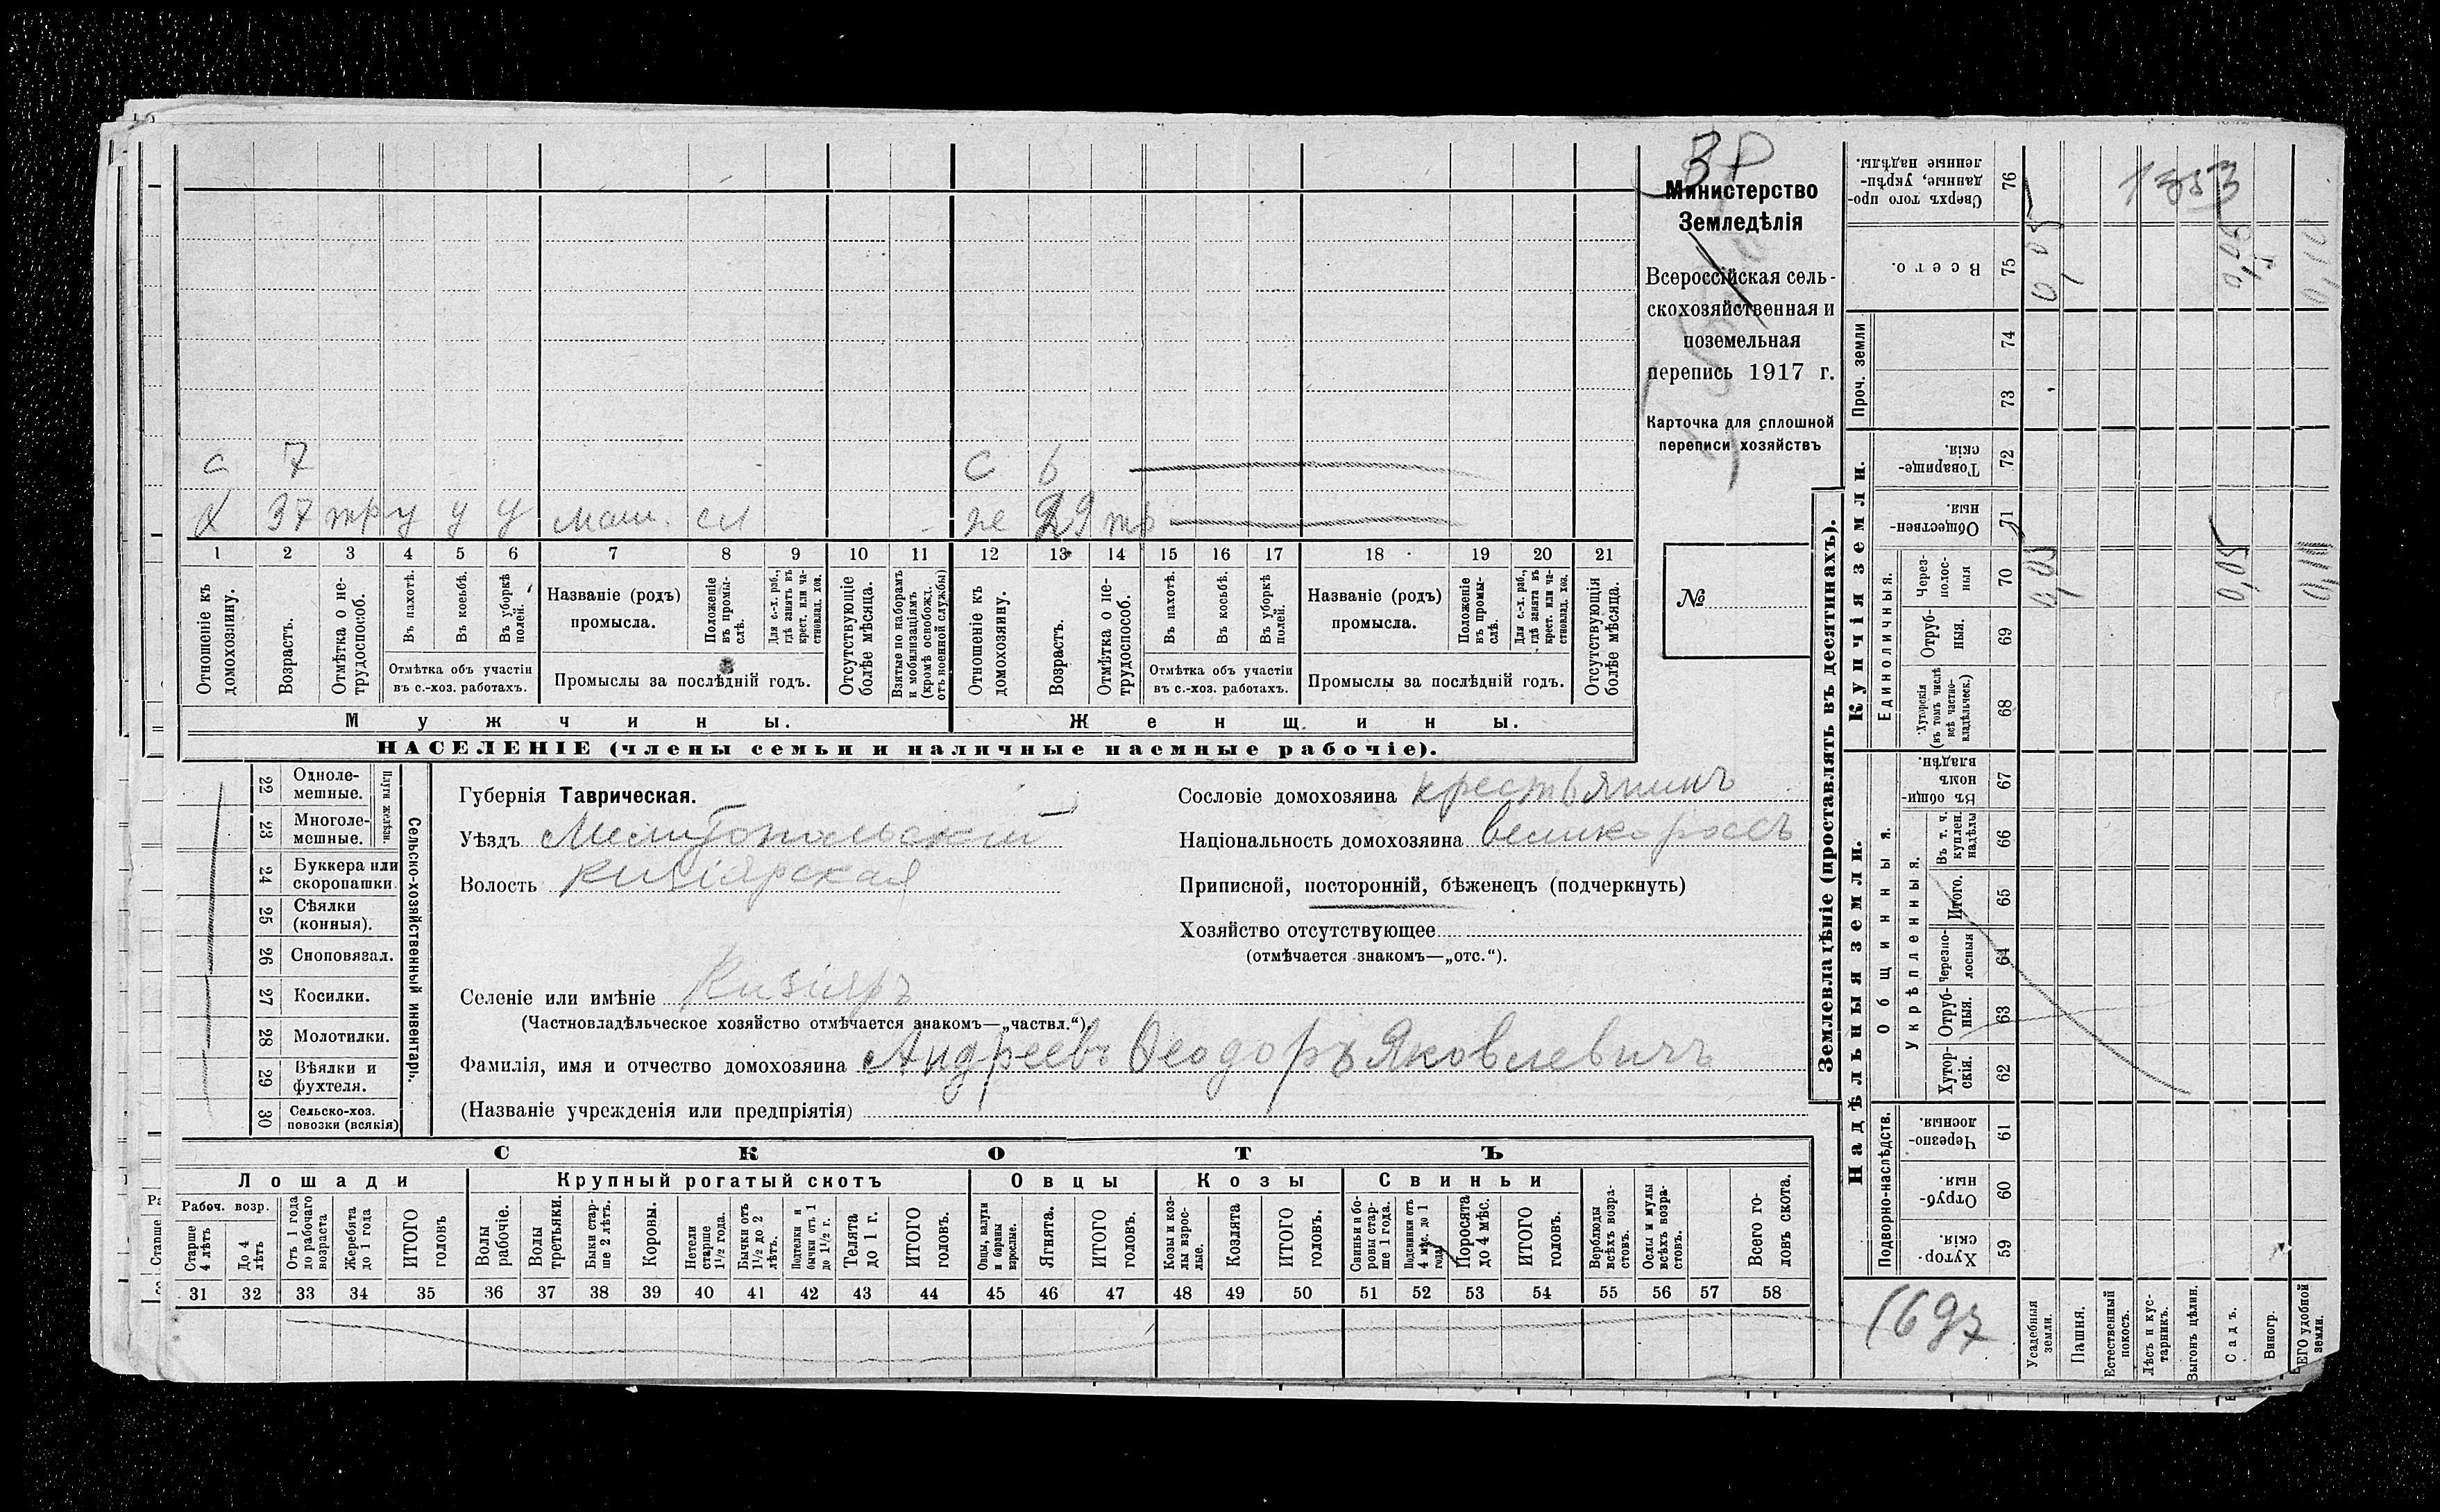 ВР
Министерство
Земледѣлія
Всероссійская сель-
скохозяйственная и
поземельная
перепись 1917 г.
Карточка для сплошной
переписи хозяйствъ
№
с 7 с 6
х 37 тр у у у маш. сл же 29 тр
1 2 3 4 5 6 7 8 9 10 11 12 13 14 15 16 17 18 19 20 21
Отношеніе къ домохозяину.
Возрастъ.
Отмѣтка о не-трудоспособ.
Въ пахотѣ.
Въ косьбѣ.
Въ уборкѣ полей.
Отмѣтка объ участіи
въ с.-хоз. работахъ.
Названіе (родъ)
промысла.
Положеніе въ промы-слѣ.
Для с.-х. раб., гдѣ занятъ въ крест. или ча-стновлад. хоз.
Промыслы за послѣдній годъ.
Отсутствующіе болѣе мѣсяца.
Взятые по наборамъ и мобилизаціямъ (кромѣ освобожд. отъ военной службы)
Отношеніе къ домохозяину.
Возрастъ.
Отмѣтка о не-трудоспособ.
Въ пахотѣ.
Въ косьбѣ.
Въ уборкѣ полей.
Отмѣтка объ участіи
въ с.-хоз. работахъ.
Названіе (родъ)
промысла.
Положеніе въ промы-слѣ.
Для с.-х. раб., гдѣ занята въ крест. или ча-стновлад. хоз.
Промыслы за послѣдній годъ.
Отсутствующія болѣе мѣсяца.
Мужчины.
Женщины.
НАСЕЛЕНІЕ (члены семьи и наличные наемные рабочіе).
22 Одноле-мешные.
23 Многоле-мешные.
Плуги желѣзн.
24 Буккера или скоропашки.
25 Сѣялки (конныя).
26 Сноповязал.
27 Косилки.
28 Молотилки.
29 Вѣялки и фухтеля.
30 Сельско-хоз. повозки (всякія)
Сельско-хозяйственный инвентарь.
Губернія Таврическая.
Уѣздъ Мелитопольскій
Волость Кизіярская
Сословіе домохозяина крестьянинъ
Національность домохозяина великороссъ
Приписной, посторонній, бѣженецъ (подчеркнуть)
Хозяйство отсутствующее
(отмѣчается знакомъ—„отс.“).
Селеніе или имѣніе Кизіяръ
(Частновладѣльческое хозяйство отмѣчается знакомъ—„частвл.“).
Фамилія, имя и отчество домохозяина Андреевъ Ѳеодоръ Яковлевичъ
(Названіе учрежденія или предпріятія)
СКОТЪ
Лошади
Крупный рогатый скотъ
Овцы
Козы
Свиньи
Рабоч. возр.
Старше 4 лѣтъ
До 4 лѣтъ
Отъ 1 года до рабочаго возраста
Жеребята до 1 года
ИТОГО головъ
Волы рабочіе.
Волы третьяки.
Быки стар-ше 2 лѣтъ.
Коровы.
Нетели старше 1½ года.
Бычки отъ 1½ до 2 лѣтъ.
Подтелки и бычки отъ 1 до 1½ г.
Телята до 1 г.
ИТОГО головъ.
Овцы, валухи и бараны взрослые.
Ягнята.
ИТОГО головъ.
Козы и коз-лы взрос-лые.
Козлята
ИТОГО головъ.
Свиньи и бо-ровы стар-ше 1 года.
Подсвинки отъ 4 мѣс. до 1 года
Поросята до 4 мѣс.
ИТОГО головъ.
Верблюды всѣхъ возра-стовъ.
Ослы и мулы всѣхъ возра-стовъ.
Всего го-ловъ скота.
31 32 33 34 35 36 37 38 39 40 41 42 43 44 45 46 47 48 49 50 51 52 53 54 55 56 57 58
Землевладѣніе (проставлять въ десятинахъ).
Сверхъ того про-данные, укрѣп-ленные надѣлы. 76
1353
Всего. 75 0,05 0,05 0,10
Проч. земли 74
73
Купчія земли.
Товарище-скія 72
Обществен-ныя. 71
Единоличныя.
Через-полос-ныя 70 0,05 0,05 0,10
Отруб-ныя. 69
Хуторскія (въ томъ числѣ всѣ частно-владѣльческ.) 68
Надѣльныя земли.
Общинныя.
Въ общи-номъ владѣн. 67
Укрѣпленныя.
Въ т. ч. куплен. надѣлы 66
Итого. 65
Черезпо-лосныя 64
Отруб-ныя. 63
Хутор-скія. 62
Подворно-наслѣдств.
Черезпо-лосныя. 61
Отруб-ныя. 60
Хутор-скія. 59
1697
Усадебныя земли.
Пашня.
Естественный покосъ.
Лѣсъ и кус-тарникъ.
Выгонъ цѣлин.
Садъ.
Виногр.
ЕГО удобной земли.